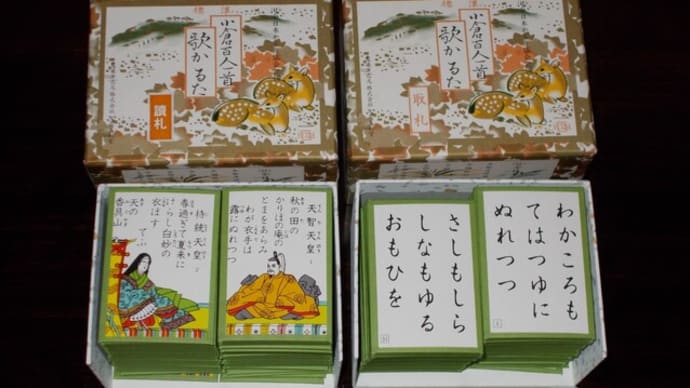 小倉百人一首
歌かるた
讀札
小倉百人一首
歌かるた
取札
天智天皇
秋の田の
かりほの庵の
とまをあらみ
わが衣手は
露にぬれつつ
持統天皇
春過ぎて夏来に
けらし白妙の
衣ほす
てふ
天の
香具山
わかころも
てはつゆに
ぬれつつ
さしもしら
しなもゆる
おもひを